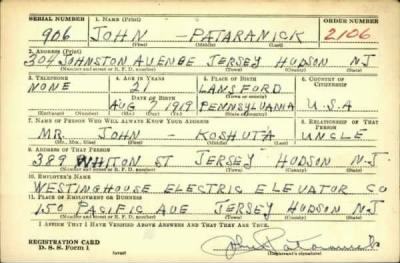 SERIAL NUMBER 1. NAME (Print) ORDER NUMBER
906 JOHN - PATARANICK 2106
(First) (Middle) (Last)
2. ADDRESS (Print)
304 JOHNSTON AUENUE JERSEY HUDSON NJ
(Number and street or R. F. D. number) (Town) (County) (State)
3. TELEPHONE 4. AGE IN YEARS 5. PLACE OF BIRTH 6. COUNTRY OF CITIZENSHIP
NONE 21 LANSFORD
DATE OF BIRTH
AUG 7 1919 PENNSYLVANIA U.S.A
(Exchange) (Number) (Mo.) (Day) (Yr.) (State or country)
7. NAME OF PERSON WHO WILL ALWAYS KNOW YOUR ADDRESS 8. RELATIONSHIP OF THAT PERSON
MR. JOHN - KOSHUTA UNCLE
(Mr., Mrs., Miss) (First) (Middle) (Last)
9. ADDRESS OF THAT PERSON
389 WHITON ST JERSEY HUDSON N.J.
(Number and street or R. F. D. number) (Town) (County) (State)
10. EMPLOYER'S NAME
WESTINGHOUSE ELECTRIC ELEVATOR CO
11. PLACE OF EMPLOYMENT OR BUSINESS
150 PACIFIC AUE JERSEY HUDSON N.J
(Number and street or R. F. D. number) (Town) (County) (State)
I AFFIRM THAT I HAVE VERIFIED ABOVE ANSWERS AND THAT THEY ARE TRUE.
REGISTRATION CARD
D. S. S. Form 1 (over) John
(Registrant's signature)